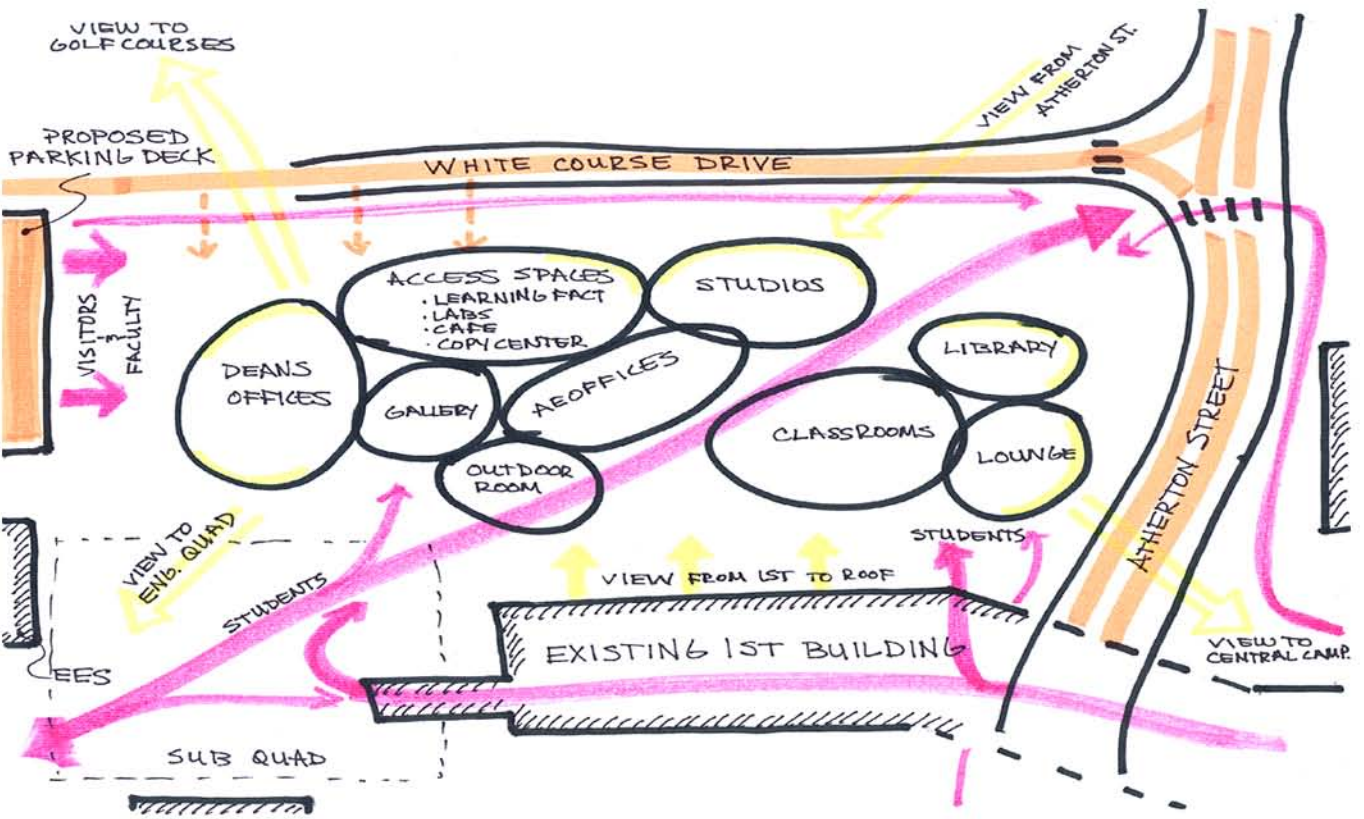 VIEW TO
GOLF COURSES
VIEW FROM
ATHERTON ST.
PROPOSED
PARKING DECK
WHITE COURSE DRIVE
VISITORS
&
FACULTY
ACCESS SPACES
· LEARNING FACT
· LABS
· CAFE
· COPY CENTER
STUDIOS
DEANS
OFFICES
GALLERY
AE OFFICES
LIBRARY
CLASSROOMS
LOUNGE
OUTDOOR
ROOM
ATHERTON STREET
VIEW TO
ENG. QUAD
STUDENTS
STUDENTS
VIEW FROM IST TO ROOF
EXISTING IST BUILDING
VIEW TO
CENTRAL CAMP.
EES
SUB QUAD